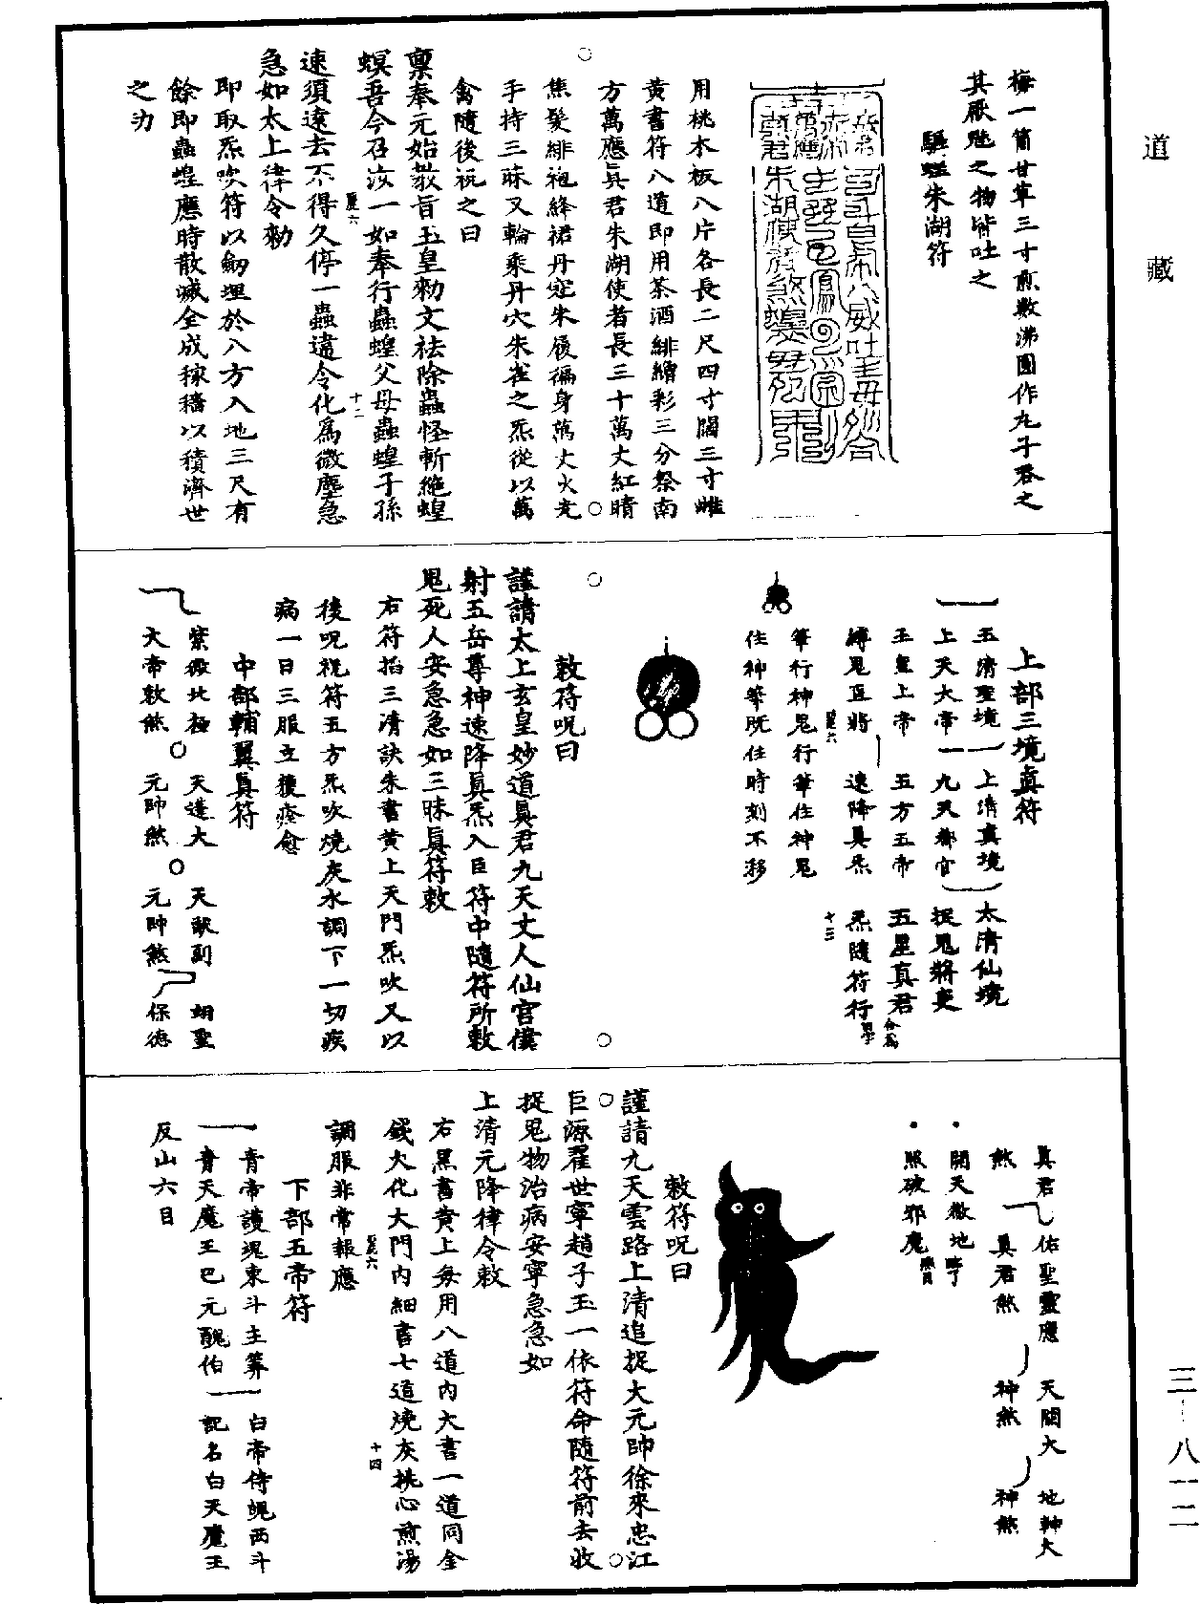 道藏
梅一箇甘草三寸煎數沸圓作九子吞之
其厭魅之物皆吐之
驅蝗朱湖符
用桃木板八片各長二尺四寸闊三寸雌
黃書符八道即用茶酒緋繒彩三分祭南
方萬應真君朱湖使者長三十萬丈紅睛
焦髮緋袍絳裙丹冠朱履徧身萬丈火光
手持三昧火輪乘丹穴朱雀之炁從以萬
禽隨後祝之曰
稟奉元始教旨玉皇勑文祛除蟲怪斬絕蝗
螟吾今召汝一如奉行蟲蝗父母蟲蝗子孫
速須遠去不得久停一蟲違令化為微塵急
急如太上律令勑
即取炁吹符以劒埋於八方入地三尺有
餘即蟲蝗應時散滅全成稼穡以積濟世
之功
十二
上部三境真符
玉清聖境
上清真境
太清仙境
上天大帝
九天都官
捉鬼將吏
玉皇上帝
五方五帝
五星真君
縛鬼直將
速降真炁
炁隨符行
筆行神鬼行筆住神鬼
住神筆既住時刻不移
十三
敕符呪曰
謹請太上玄皇妙道真君九天丈人仙官僕
射五岳尊神速降真炁入臣符中隨符所敕
鬼死人安急急如三昧真符敕
右符掐三清訣朱書黃上天門炁吹又以
後呪祝符五方炁吹燒灰水調下一切疾
病一日三服立獲痊愈
中部輔翼真符
紫微北極
大帝敕煞
天蓬大
元帥煞
天猷副
元帥煞
翊聖
保德
真君
煞
佑聖靈應
真君煞
天關大
神煞
地軸大
神煞
開天徹地
照破邪魔
敕符呪曰
謹請九天雲路上清追捉大元帥徐來忠江
巨源翟世寧趙子玉一依符命隨符前去收
捉鬼物治病安寧急急如
上清元降律令敕
右黑書黃上每用八道內大書一道同金
錢火化大門內細書七道燒灰桃心煎湯
調服非常報應
十四
下部五帝符
青帝護魂東斗主筭
青天魔王巴元醜伯
白帝侍魄西斗
記名白天魔王
反山六目
三一八一二